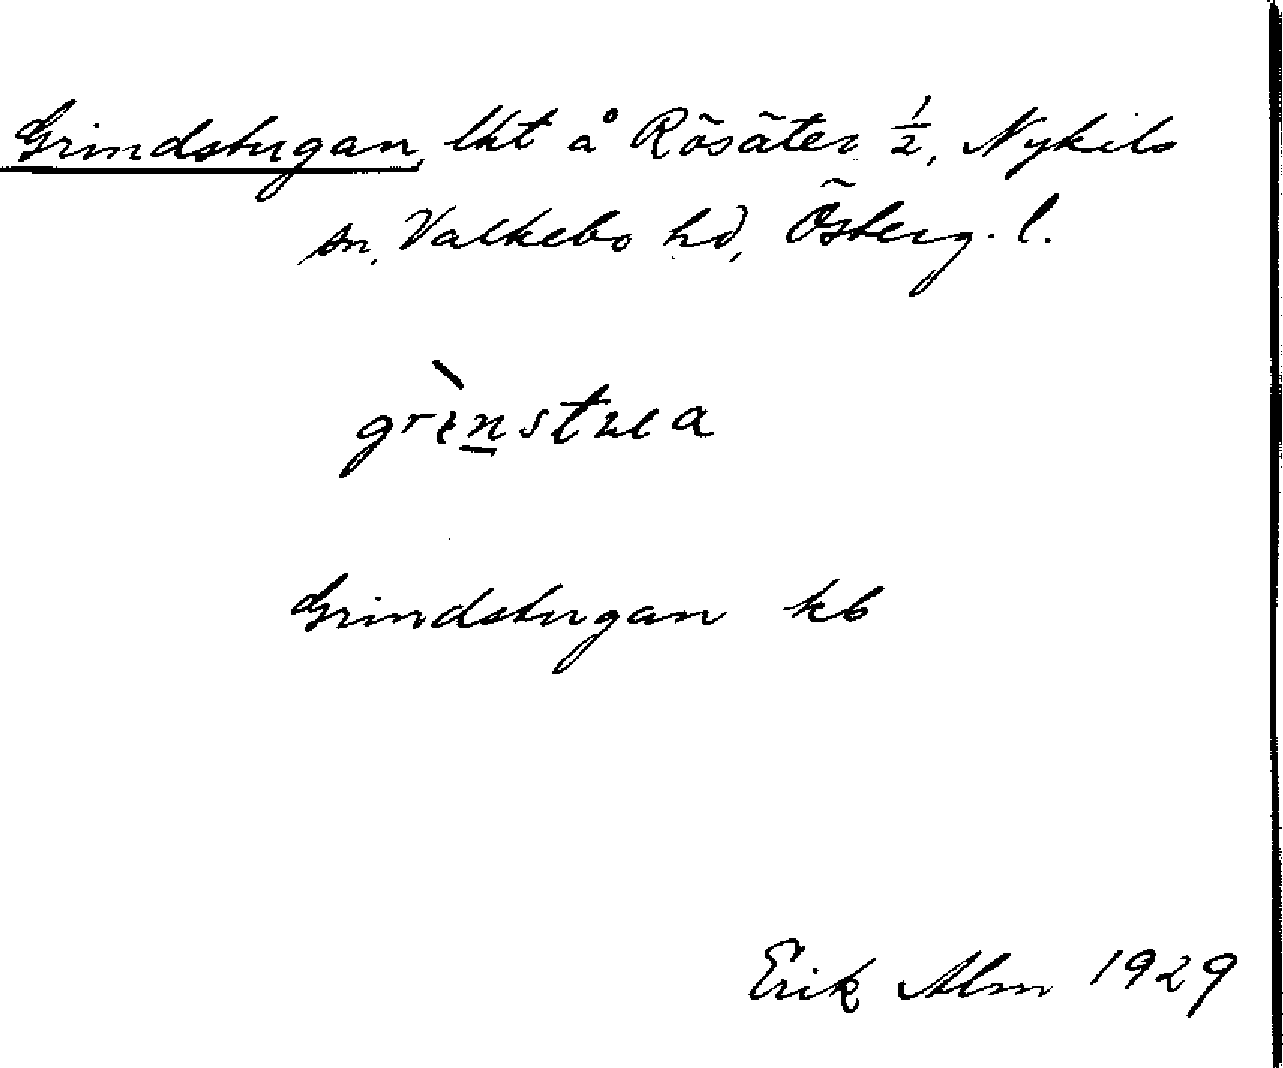 Grindstugan, lht å Rösäter ½, Nykils
sn, Valkebo hd, Österg. l.
grìnstua
Grindstugan kb
Erik Alm 1929